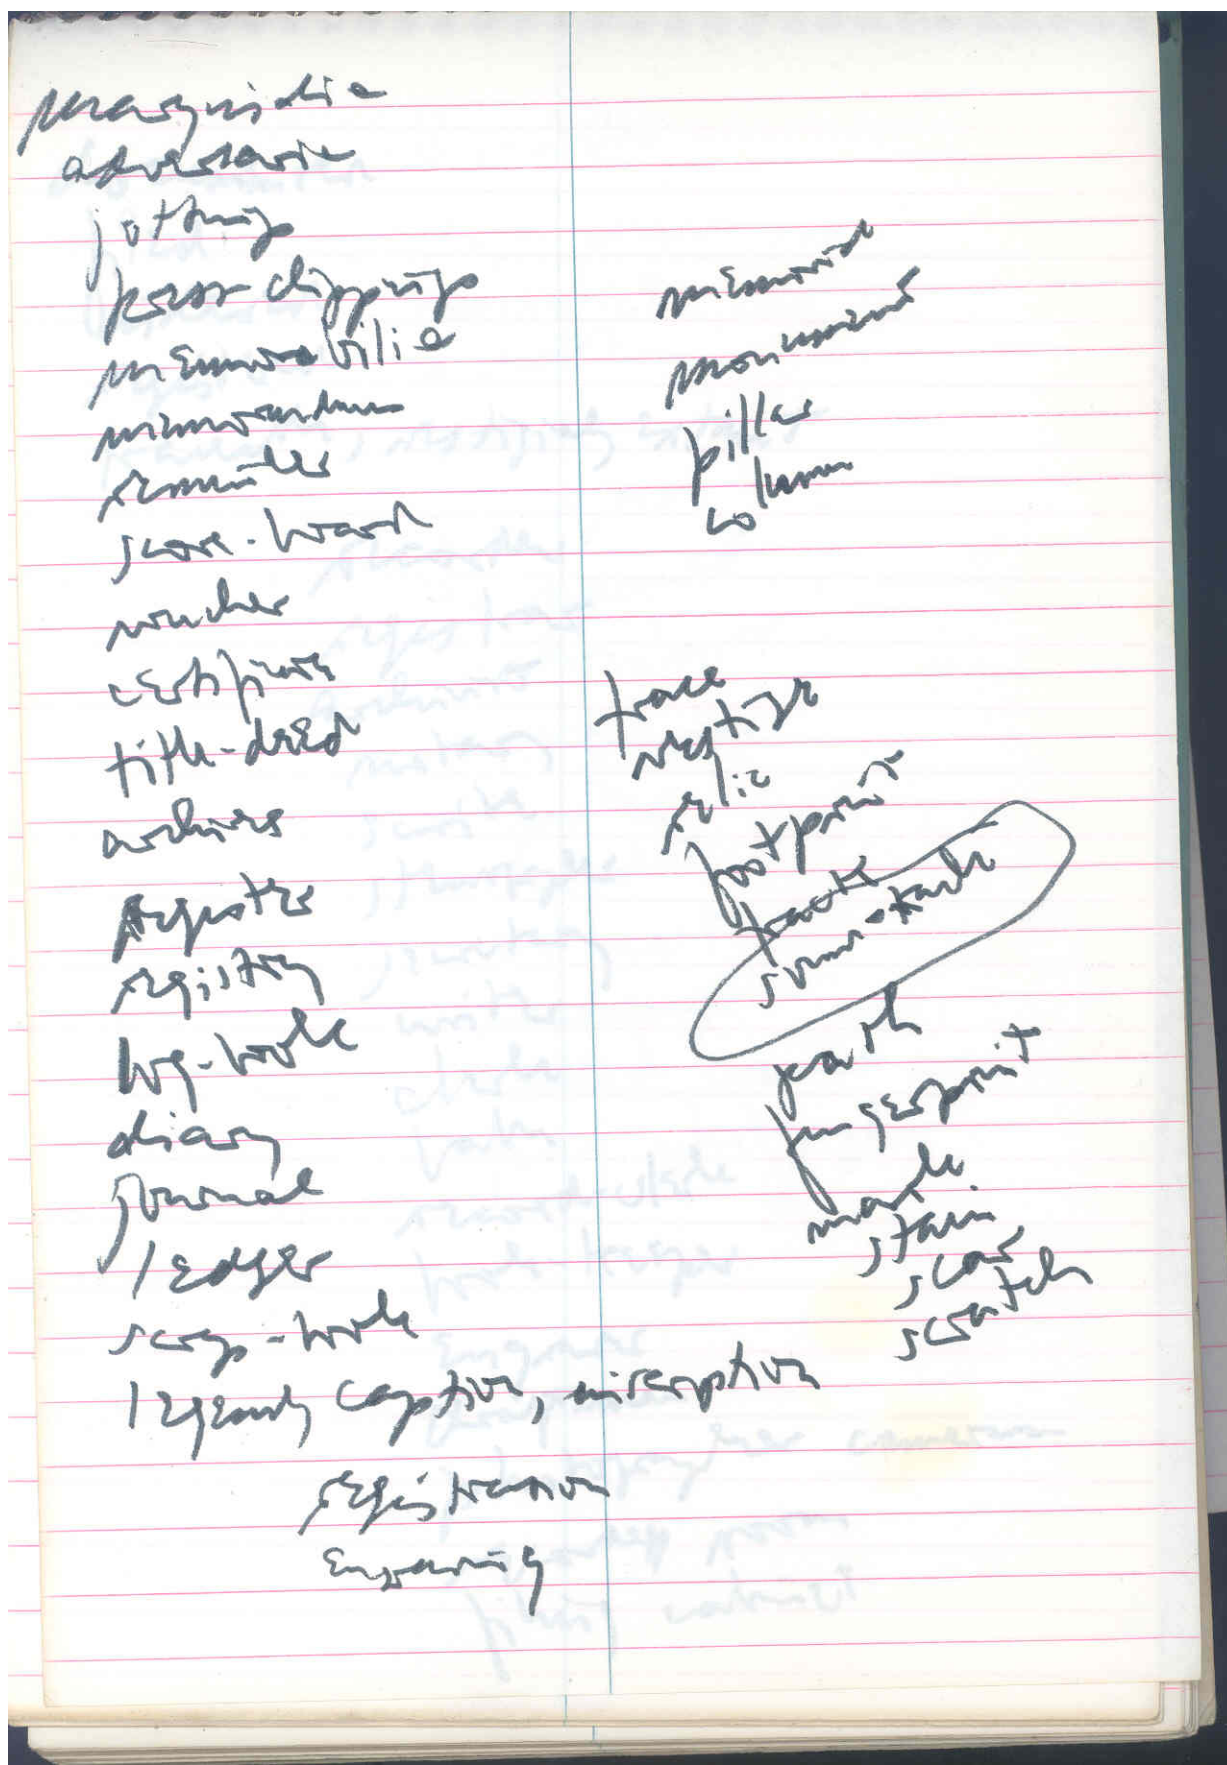 marginalia
adversaria
jottings
press clippings
memorabilia
memorandum
reminder
score-board
voucher
certificate
title-deed
archives
register
registry
log-book
diary
journal
ledger
scrap-book
legend, caption, inscription
registration
engraving
memorial
monument
pillar
column
trace
vestige
relic
footprint
tracks
sound-track
fingerprint
mark
stain
scar
scratch